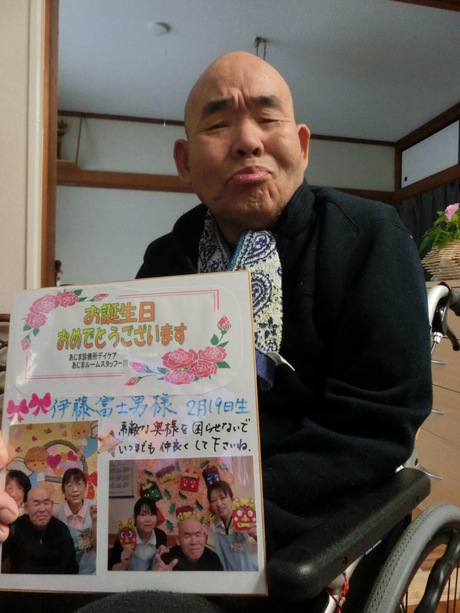 お誕生日
おめでとうございます
あじま診療所デイケア
あじまルームスタッフ一同
伊藤富士男様 2月19日生
素敵な奥様を困らせないで
いつまでも仲良くして下さいね。